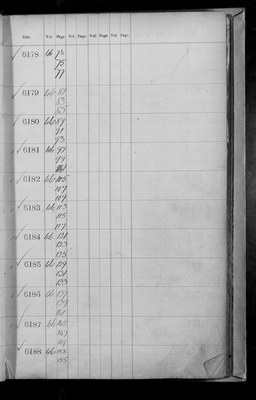 Vol. Page. Vol. Page. Vol. Page. Vol. Page.
6178 66 73
75
77
6179 66 81
83
85
6180 66 89
91
93
6181 66 97
99
6182 66 105
107
109
6183 66 113
115
117
6184 66 121
123
125
6185 66 129
131
133
6186 66 137
139
141
6187 66 145
147
149
6188 66 153
155